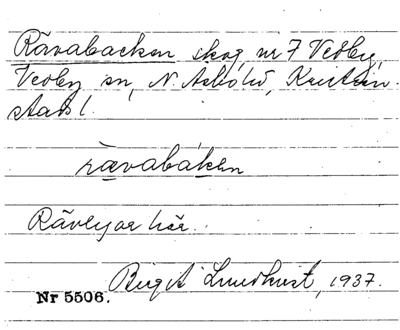 Rävabacken skog nr 7 Vedby,
Vedby sn, N. Åsbo hd, Kristian-
stads l.
rävabakən
Rävlyor här.
Birgit Lundkvist, 1937.
Nr 5506.